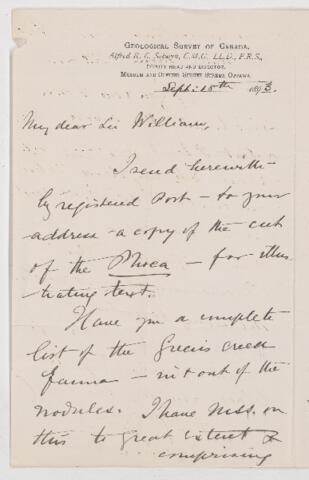 GEOLOGICAL SURVEY OF CANADA.
Alfred R. C. Selwyn, C.M.G., LL.D., F.R.S.,
DEPUTY HEAD AND DIRECTOR.
MUSEUM AND OFFICE, SUSSEX STREET, OTTAWA.
Sept: 18th 1893
My dear Sir William,
I send herewith
by registered Post – to your
address – a copy of the cut
of the Phoca – for illus
trating text.
Have you a complete
list of the Green's Creek
fauna – in & out of the
nodules. I have mss. on
this to great extent &
comprising